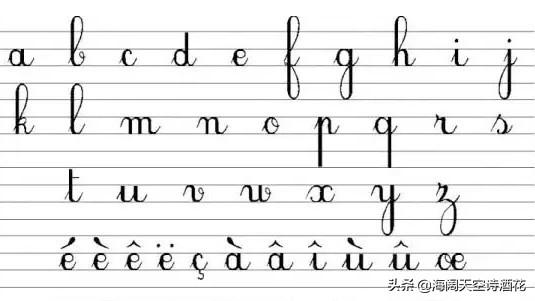 a b c d e f g h i j
k l m n o p q r s
t u v w x y z
é è ê ë ç à â î ù û œ
头条 @海阔天空诗酒花